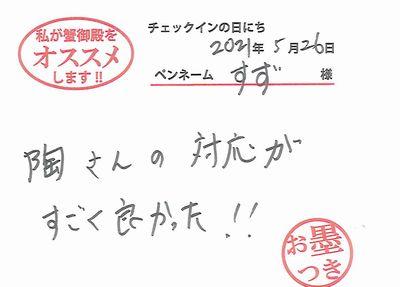 私が蟹御殿を
オススメ
します!!
チェックインの日にち
2021年5月26日
ペンネーム すず 様
陶さんの対応が
すごく良かった!!
お墨
つき